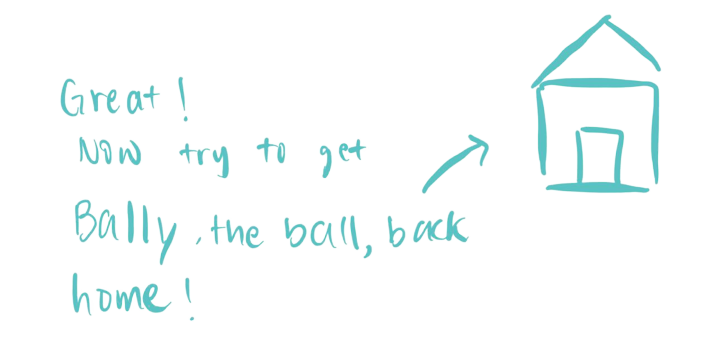 Great!
Now try to get
Bally, the ball, back
home!